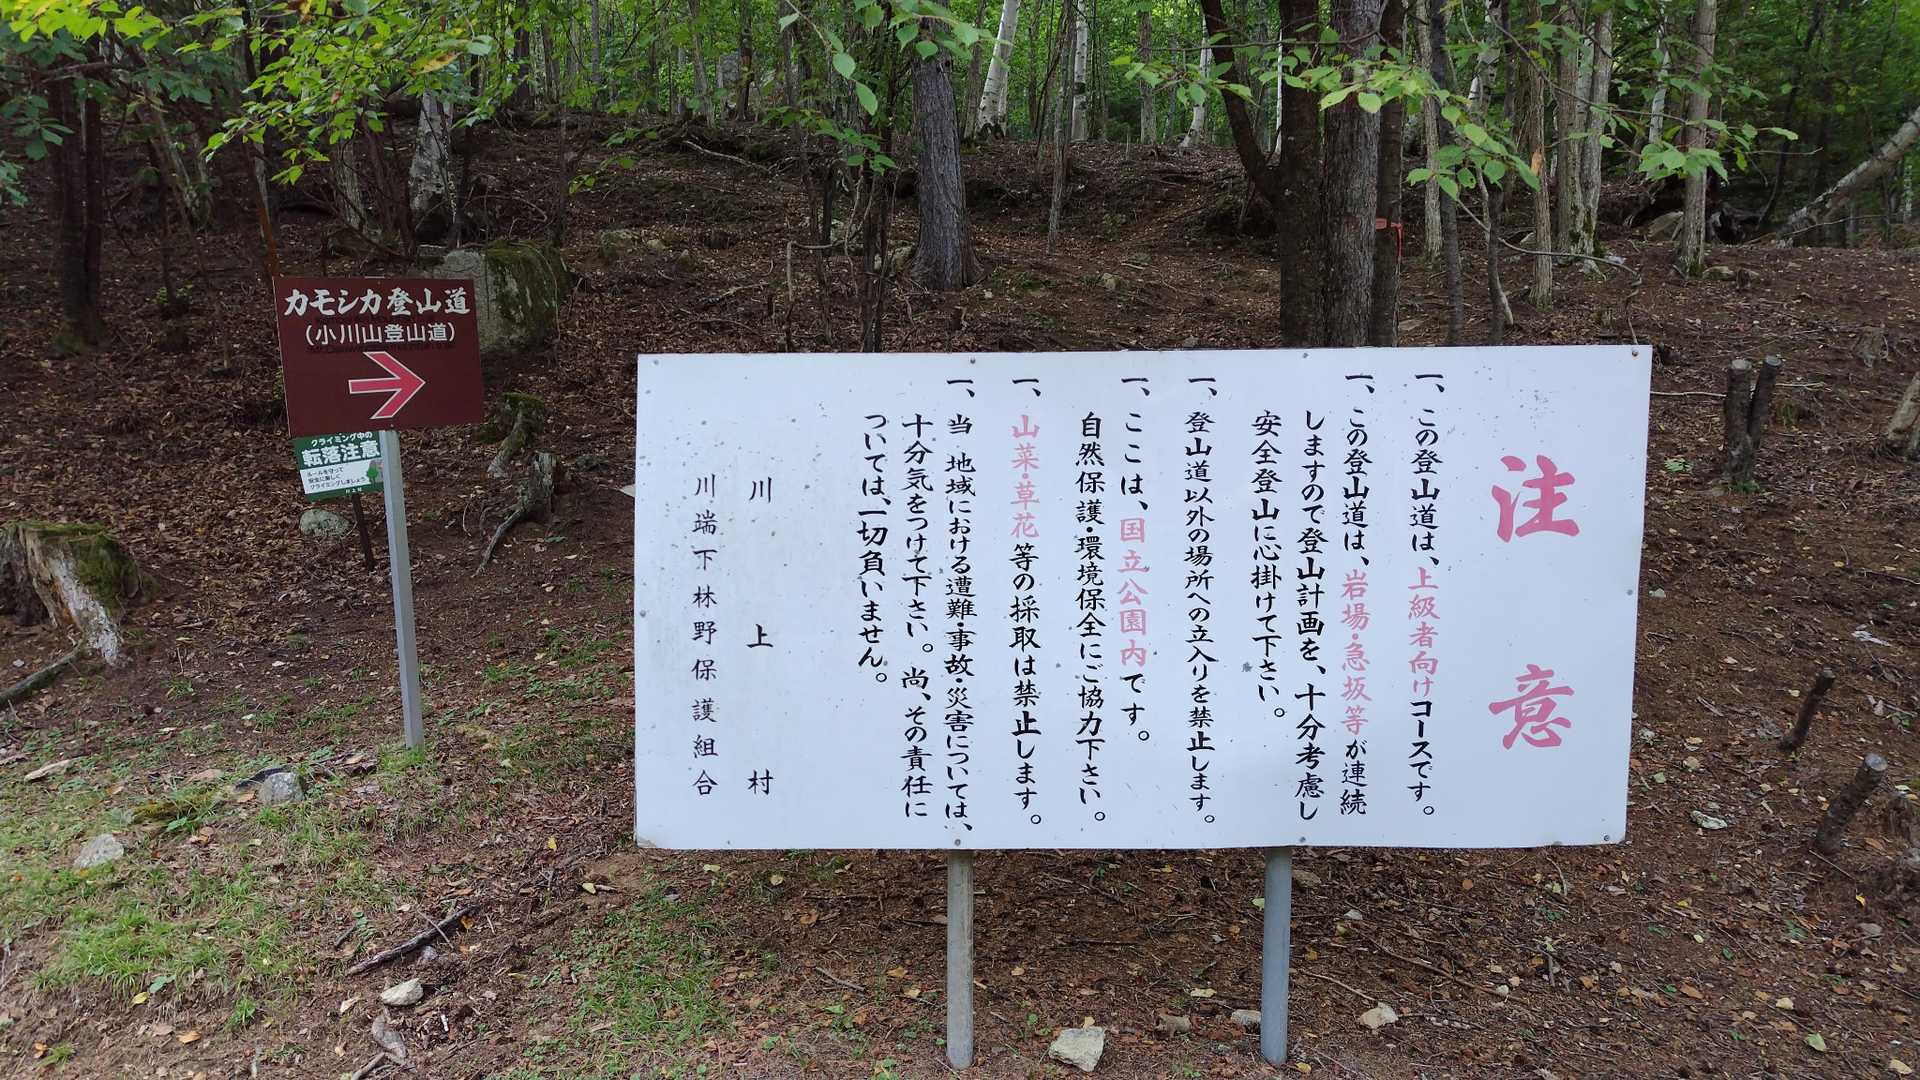 カモシカ登山道
(小川山登山道)
クライミング中の
転落注意
ルールを守って
安全に楽しく
クライミングしましょう
川上村
注意
一、この登山道は、上級者向けコースです。
一、この登山道は、岩場・急坂等が連続
しますので登山計画を、十分考慮し
安全登山に心掛けて下さい。
一、登山道以外の場所への立入りを禁止します。
一、ここは、国立公園内です。
自然保護・環境保全にご協力下さい。
一、山菜・草花等の採取は禁止します。
一、当地域における遭難・事故・災害については、
十分気をつけて下さい。尚、その責任に
ついては、一切負いません。
川上村
川端下林野保護組合